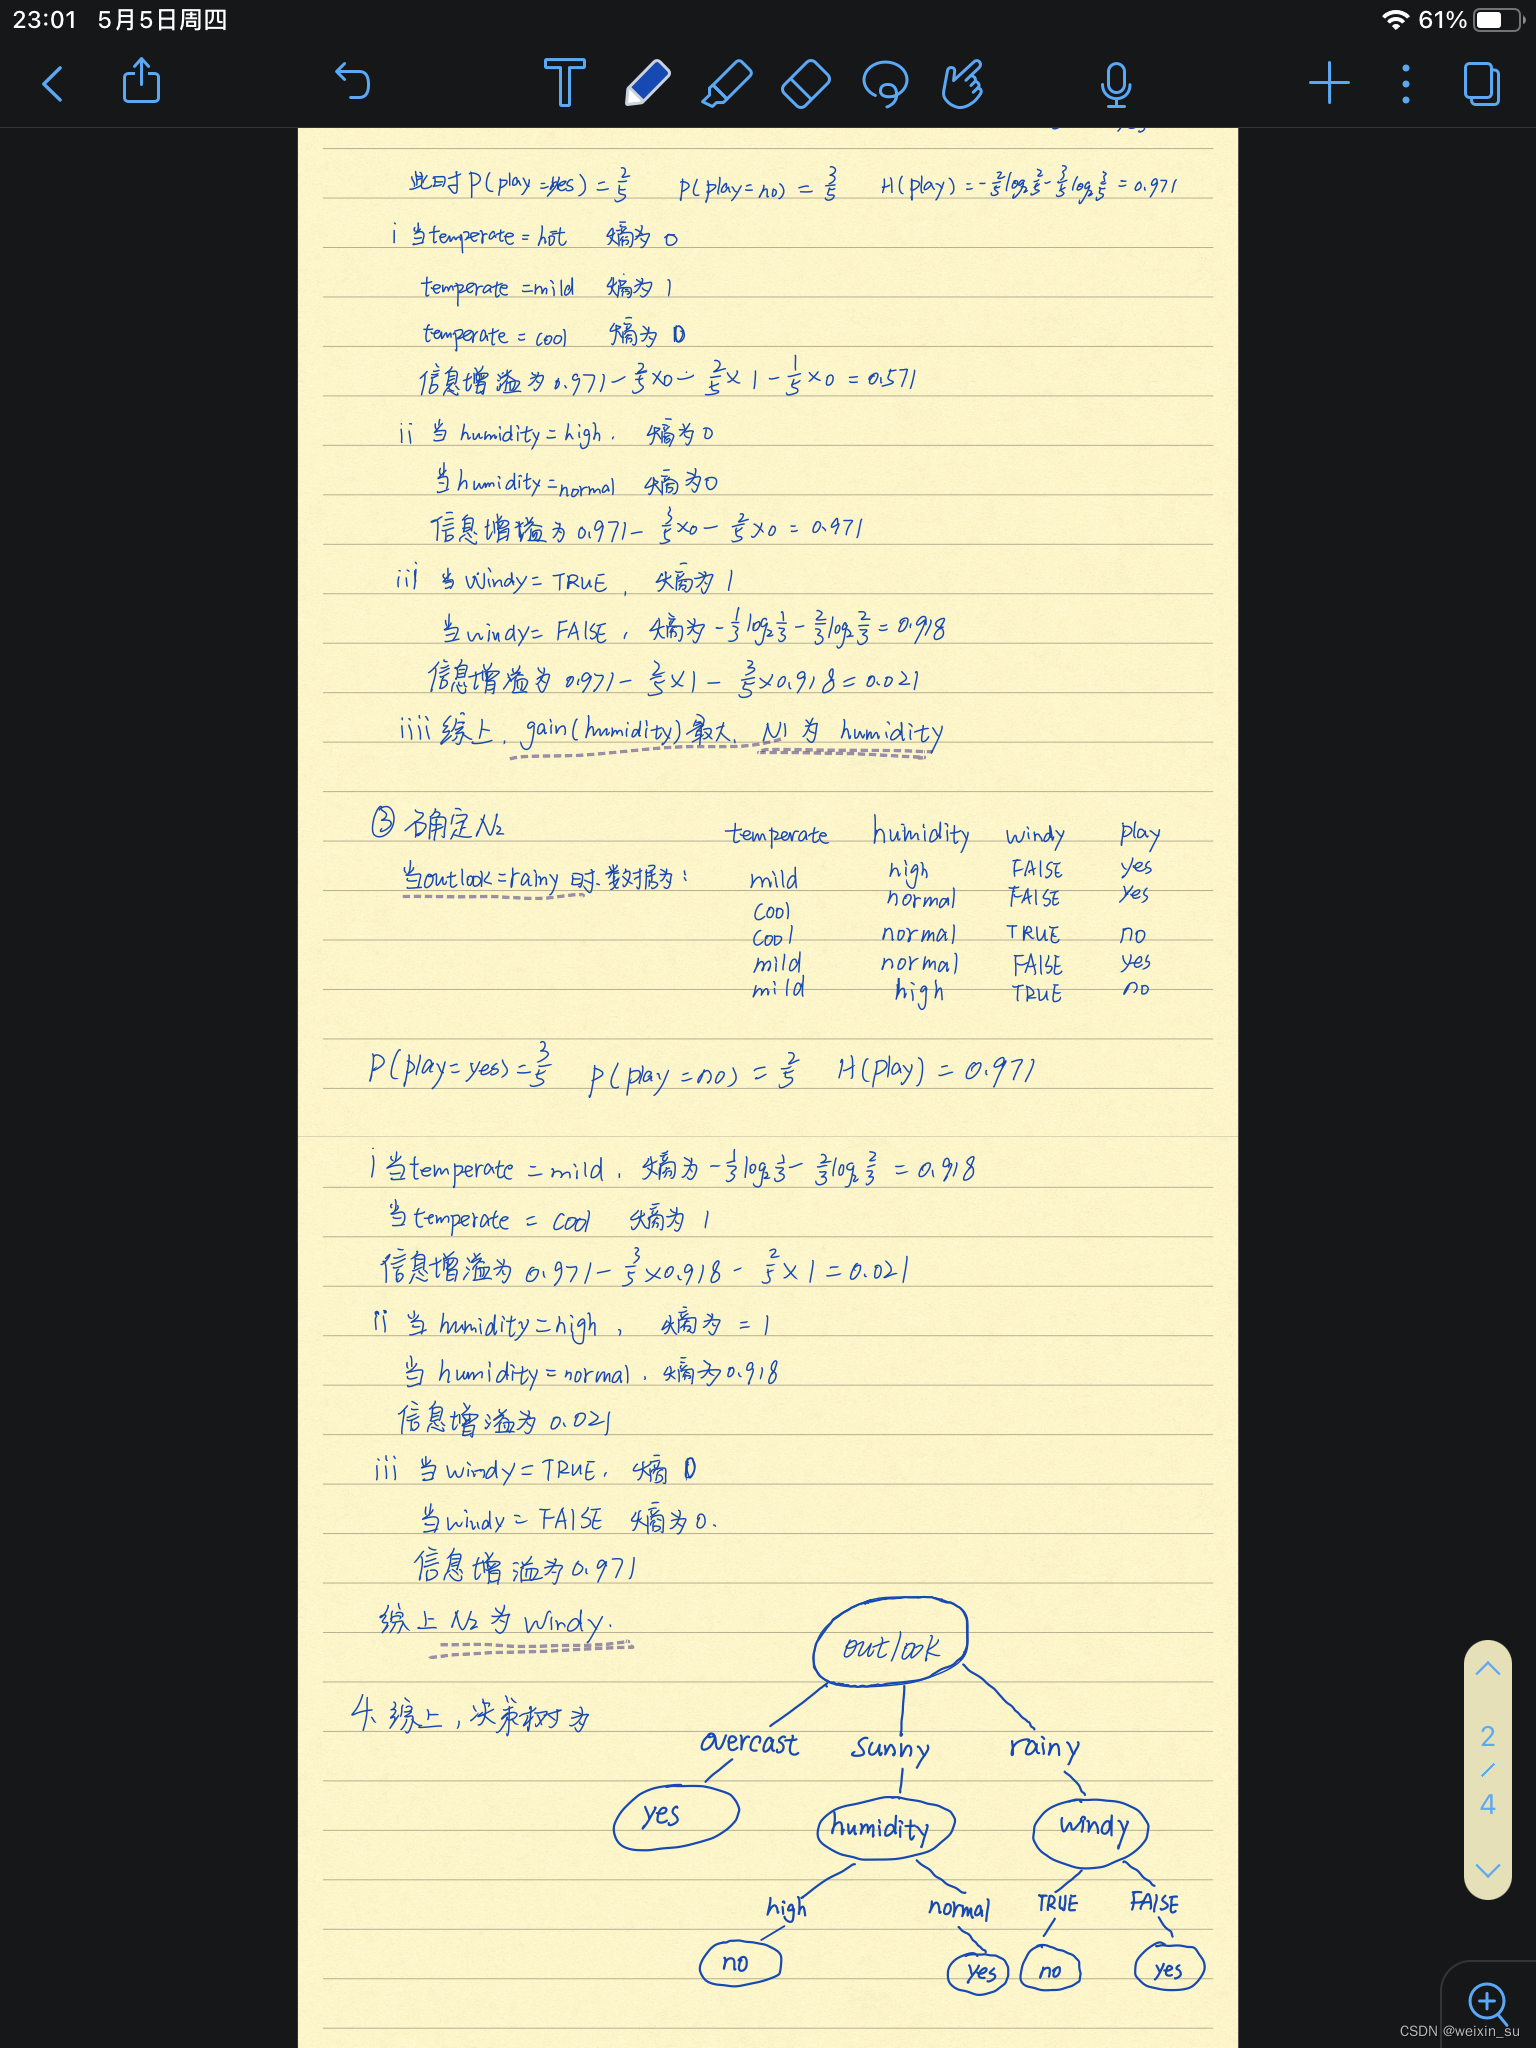 23:01 5月5日周四 61%
此时 P(play=yes) = 2/5 P(play=no) = 3/5 H(play) = -2/5log₂2/5 - 3/5log₂3/5 = 0.971
i 当temperate = hot 熵为 0
temperate = mild 熵为 1
temperate = cool 熵为 0
信息增溢为 0.971 - 2/5×0 - 2/5×1 - 1/5×0 = 0.571
ii 当 humidity = high. 熵为 0
当 humidity = normal 熵为0
信息增溢为 0.971 - 3/5×0 - 2/5×0 = 0.971
iii 当 Windy = TRUE , 熵为 1
当windy = FAlSE , 熵为 -1/3log₂1/3 - 2/3log₂2/3 = 0.918
信息增溢为 0.971 - 2/5×1 - 3/5×0.918 = 0.021
iiii 综上, gain(humidity)最大. N1 为 humidity
③ 确定N₂
temperate humidity windy play
当outlook=rainy 时.数据为:
mild high FAlSE yes
cool normal FAlSE yes
cool normal TRUE no
mild normal FAlSE yes
mild high TRUE no
P(play=yes) = 3/5 P(play=no) = 2/5 H(play) = 0.971
i 当temperate = mild , 熵为 -1/3log₂1/3 - 2/3log₂2/3 = 0.918
当temperate = cool 熵为 1
信息增溢为 0.971 - 3/5×0.918 - 2/5×1 = 0.021
ii 当 humidity = high , 熵为 = 1
当 humidity = normal . 熵为0.918
信息增溢为 0.021
iii 当windy = TRUE. 熵 0
当windy = FAlSE 熵为0.
信息增溢为0.971
综上 N₂ 为 Windy.
outlook
4. 综上,决策树为
overcast sunny rainy
yes humidity windy
high normal TRUE FAlSE
no yes no yes
2
/
4
CSDN @weixin_su